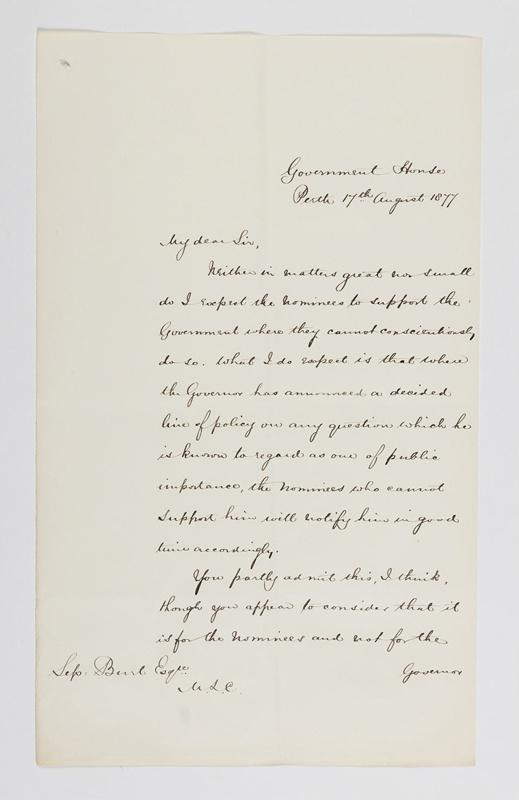 Government House
Perth 17th August 1877
My dear Sir,
Neither in matters great nor small
do I expect the nominees to support the
Government where they cannot conscientiously
do so. What I do expect is that where
the Governor has announced a decided
line of policy on any question which he
is known to regard as one of public
importance, the nominees who cannot
support him will notify him in good
time accordingly.
You partly admit this, I think,
though you appear to consider that it
is for the nominees and not for the
Governor
Sep: Burt Esqre
M.L.C.